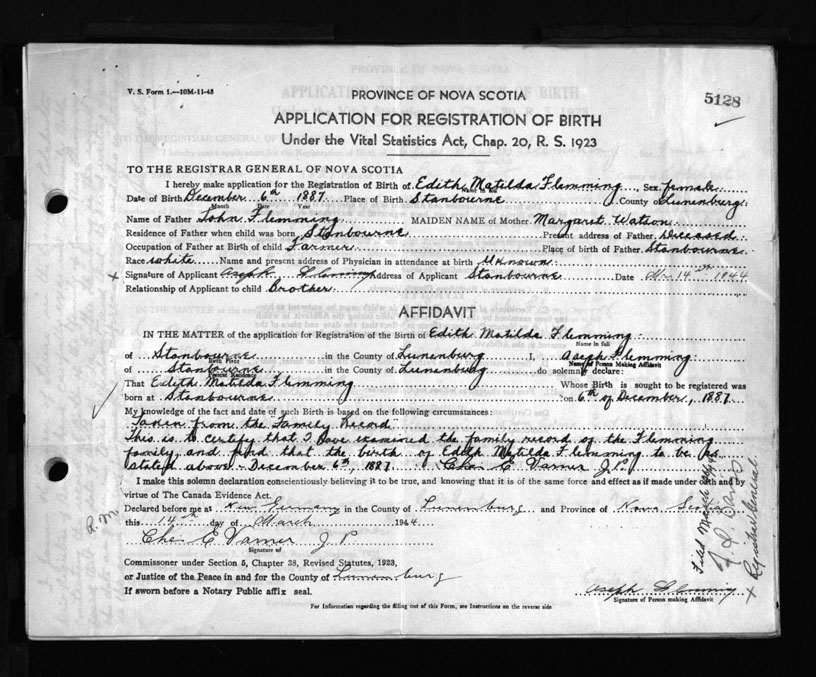 V. S. Form 1.—10M-11-43
5128
PROVINCE OF NOVA SCOTIA
APPLICATION FOR REGISTRATION OF BIRTH
Under the Vital Statistics Act, Chap. 20, R. S. 1923
TO THE REGISTRAR GENERAL OF NOVA SCOTIA
I hereby make application for the Registration of Birth of Edith Matilda Flemming, Sex female
Date of Birth December 6th 1887 Place of Birth Stanbourne County of Lunenburg
Month Day Year
Name of Father John Flemming MAIDEN NAME of Mother Margaret Watson
Residence of Father when child was born Stanbourne Present address of Father Deceased
Occupation of Father at Birth of child Farmer Place of birth of Father Stanbourne
Race white Name and present address of Physician in attendance at birth Uknown
x Signature of Applicant Aseph Flemming Address of Applicant Stanbourne Date Mr 14th 1944
Relationship of Applicant to child Brother
AFFIDAVIT
IN THE MATTER of the application for Registration of the Birth of Edith Matilda Flemming
Name in full
of Stanbourne in the County of Lunenburg I, Aseph Flemming
Birth Place Name of Person Making Affidavit
of Stanbourne in the County of Lunenburg do solemnly declare:
Present Residence
That Edith Matilda Flemming Whose Birth is sought to be registered was
born at Stanbourne on 6th of December, 1887
My knowledge of the fact and date of such Birth is based on the following circumstances:
Taken from the "Family Record"
This is to certify that I have examined the family record of the Flemming
family and find that the birth of Edith Matilda Flemming to be as
stated above - December 6th, 1887. Chas E Varner J.P.
I make this solemn declaration conscientiously believing it to be true, and knowing that it is of the same force and effect as if made under oath and by
virtue of The Canada Evidence Act.
Declared before me at New Germany in the County of Lunenburg and Province of Nova Scotia
this 14th day of March 1944
R.M.
Chas E Varner J P
Signature of
Commissioner under Section 5, Chapter 38, Revised Statutes, 1923,
or Justice of the Peace in and for the County of Lunenburg
If sworn before a Notary Public affix seal.
Aseph Flemming
Signature of Person making Affidavit
For Information regarding the filling out of this Form, see Instructions on the reverse side
Filed March
Registrar General
x